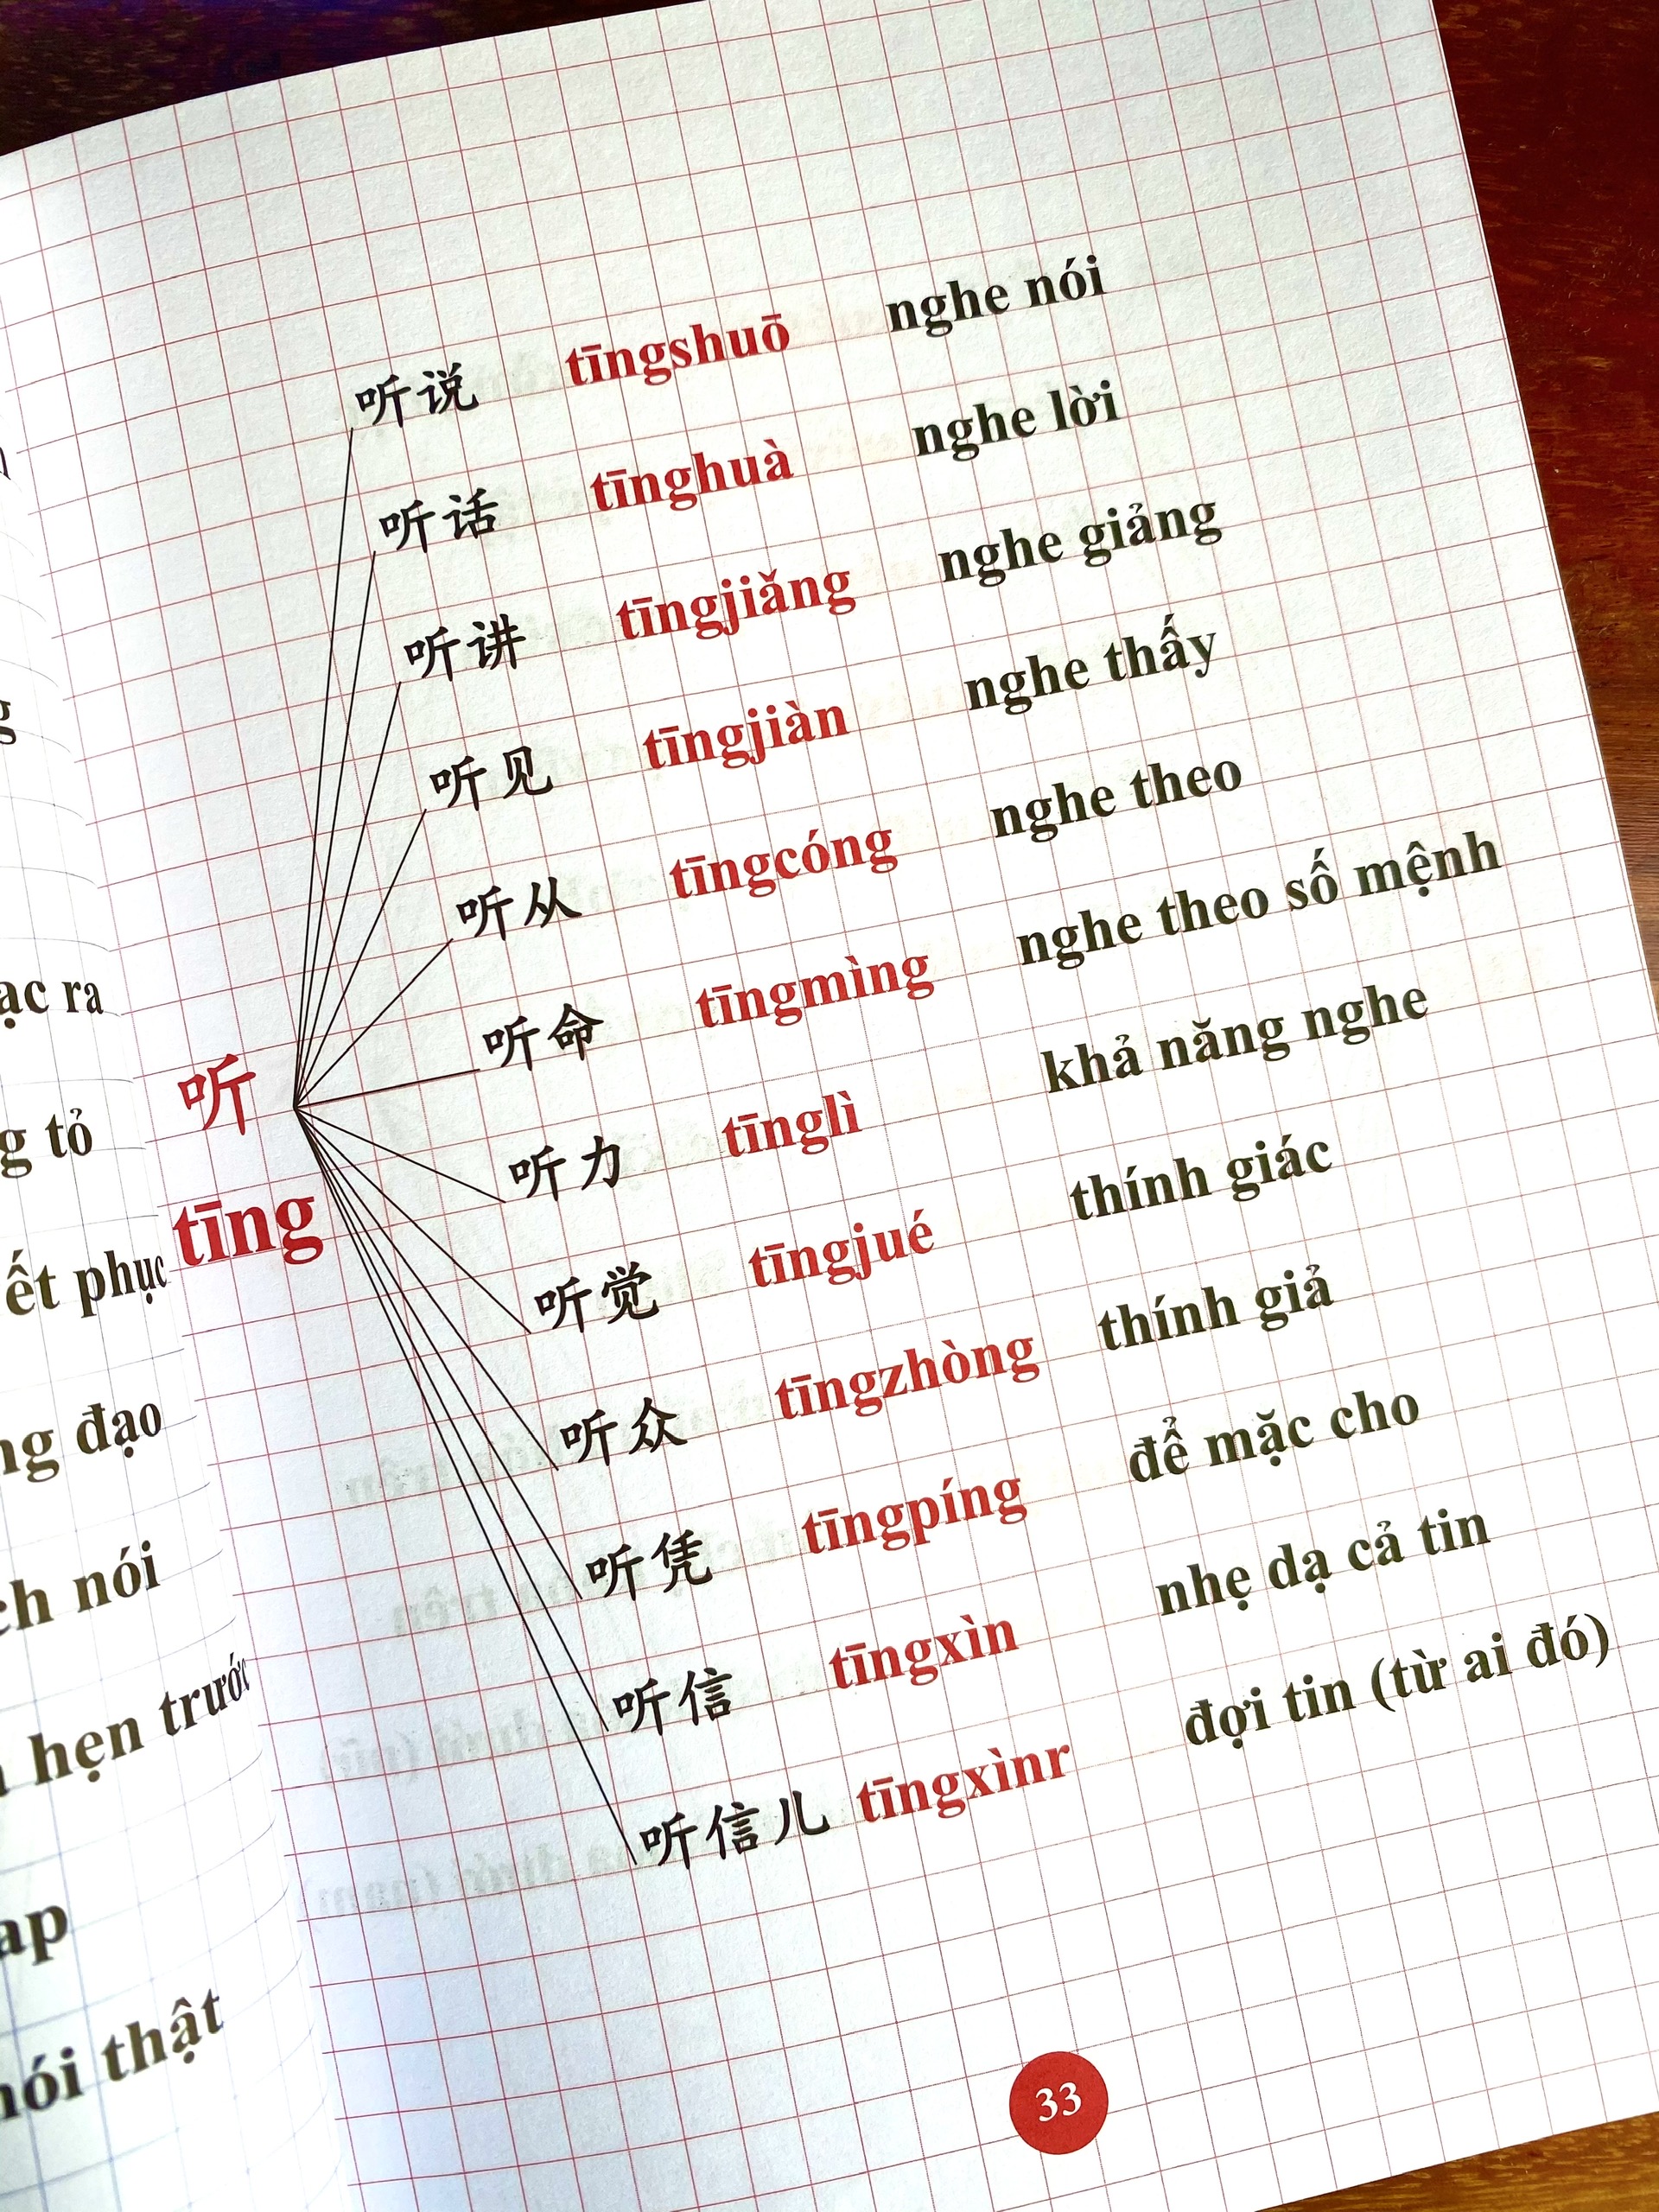 ạc ra
g tỏ
ết phục
ng đạo
ch nói
hẹn trước
ap
nói thật
听说 tīngshuō nghe nói
听话 tīnghuà nghe lời
听讲 tīngjiǎng nghe giảng
听见 tīngjiàn nghe thấy
听从 tīngcóng nghe theo
听命 tīngmìng nghe theo số mệnh
听
tīng
听力 tīnglì khả năng nghe
听觉 tīngjué thính giác
听众 tīngzhòng thính giả
听凭 tīngpíng để mặc cho
听信 tīngxìn nhẹ dạ cả tin
听信儿 tīngxìnr đợi tin (từ ai đó)
33